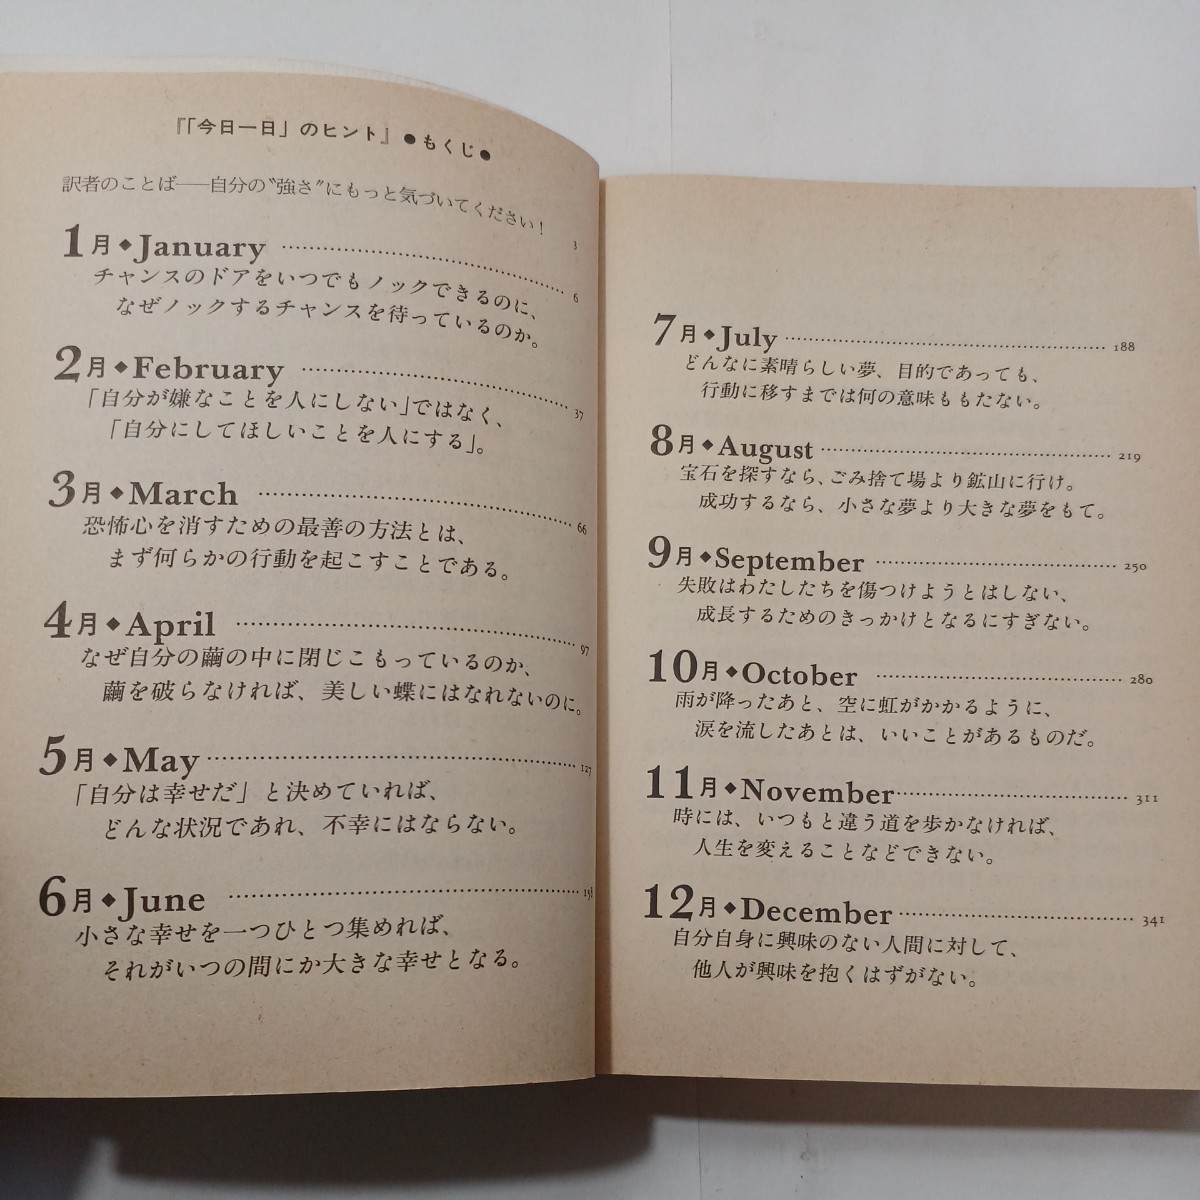 『「今日一日」のヒント』●もくじ●
訳者のことば──自分の〝強さ〟にもっと気づいてください! 3
1月◆January ……… 6
チャンスのドアをいつでもノックできるのに、
なぜノックするチャンスを待っているのか。
2月◆February ……… 37
「自分が嫌なことを人にしない」ではなく、
「自分にしてほしいことを人にする」。
3月◆March ……… 66
恐怖心を消すための最善の方法とは、
まず何らかの行動を起こすことである。
4月◆April ……… 97
なぜ自分の繭の中に閉じこもっているのか、
繭を破らなければ、美しい蝶にはなれないのに。
5月◆May ……… 127
「自分は幸せだ」と決めていれば、
どんな状況であれ、不幸にはならない。
6月◆June ……… 158
小さな幸せを一つひとつ集めれば、
それがいつの間にか大きな幸せとなる。
7月◆July ……… 188
どんなに素晴らしい夢、目的であっても、
行動に移すまでは何の意味ももたない。
8月◆August ……… 219
宝石を探すなら、ごみ捨て場より鉱山に行け。
成功するなら、小さな夢より大きな夢をもて。
9月◆September ……… 250
失敗はわたしたちを傷つけようとはしない、
成長するためのきっかけとなるにすぎない。
10月◆October ……… 280
雨が降ったあと、空に虹がかかるように、
涙を流したあとは、いいことがあるものだ。
11月◆November ……… 311
時には、いつもと違う道を歩かなければ、
人生を変えることなどできない。
12月◆December ……… 341
自分自身に興味のない人間に対して、
他人が興味を抱くはずがない。